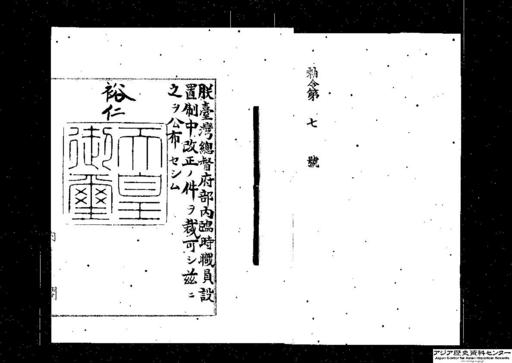 勅令第七號
朕臺灣總督府部内臨時職員設
置制中改正ノ件ヲ裁可シ茲ニ
之ヲ公布セシム
裕仁
天皇
御璽
内閣
アジア歴史資料センター
Japan Center for Asian Historical Records